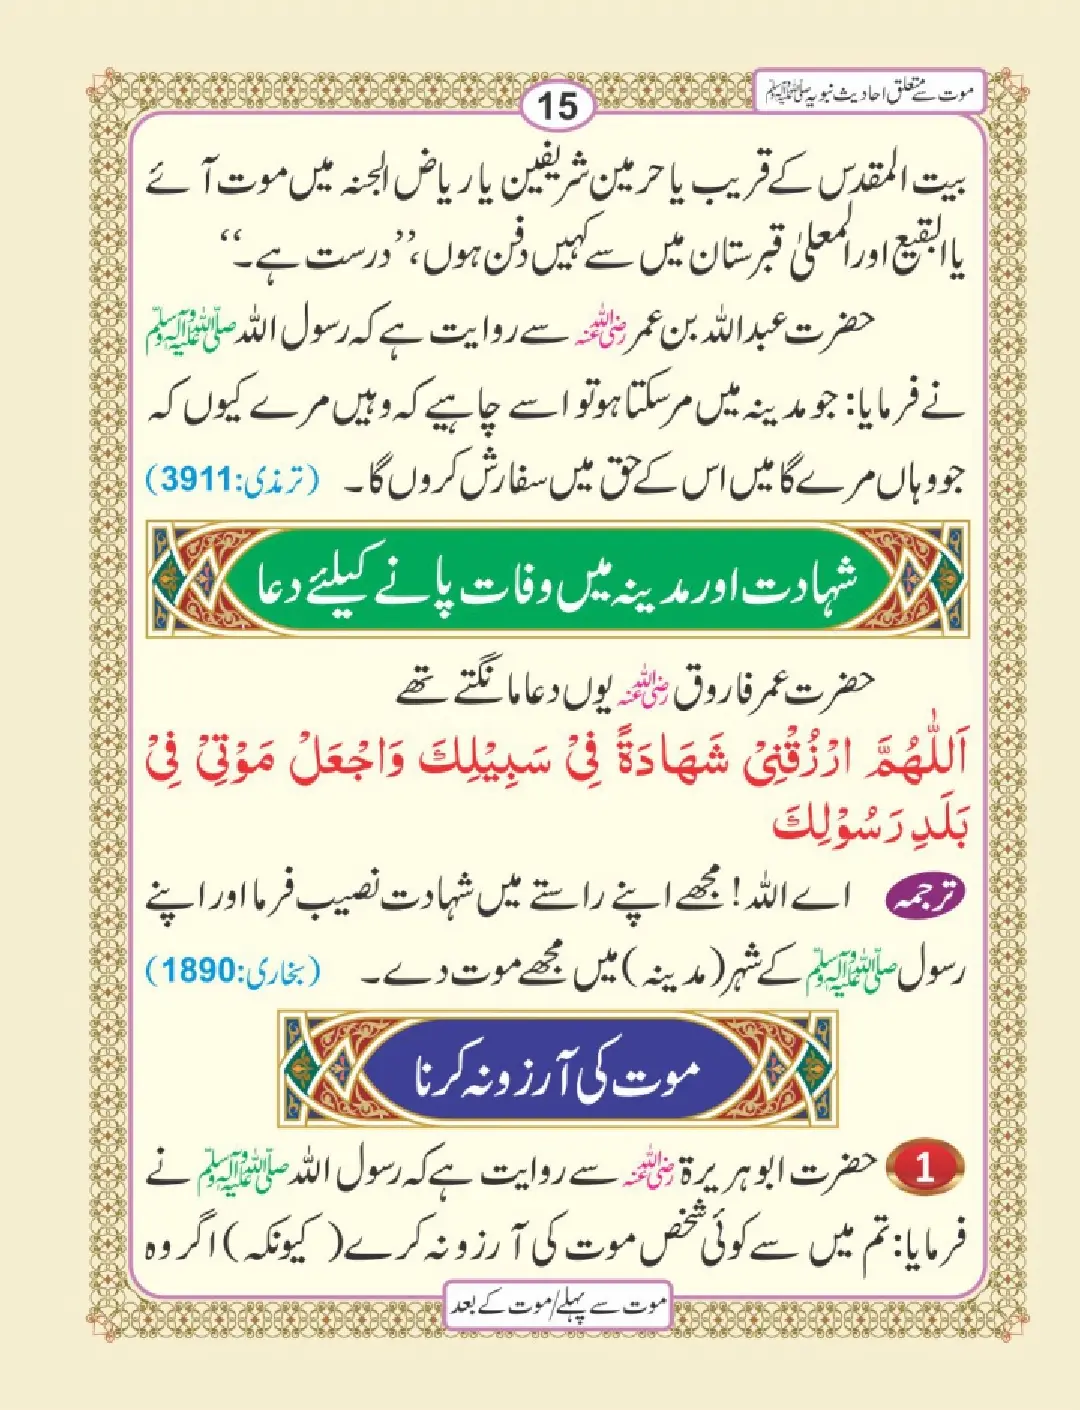 موت سے متعلق احادیث نبویہ ﷺ
15
بیت المقدس کے قریب یا حرمین شریفین یا ریاض الجنہ میں موت آئے
یا البقیع اور المعلیٰ قبرستان میں سے کہیں دفن ہوں،’’درست ہے۔‘‘
حضرت عبداللہ بن عمر رضی اللہ عنہ سے روایت ہے کہ رسول اللہ ﷺ
نے فرمایا: جو مدینہ میں مر سکتا ہو تو اسے چاہیے کہ وہیں مرے کیوں کہ
جو وہاں مرے گا میں اس کے حق میں سفارش کروں گا۔ (ترمذی:3911)
شہادت اور مدینہ میں وفات پانے کیلئے دعا
حضرت عمر فاروق رضی اللہ عنہ یوں دعا مانگتے تھے
اَللّٰهُمَّ ارْزُقْنِيْ شَهَادَةً فِيْ سَبِيْلِكَ وَاجْعَلْ مَوْتِيْ فِيْ
بَلَدِ رَسُوْلِكَ
ترجمہ اے اللہ! مجھے اپنے راستے میں شہادت نصیب فرما اور اپنے
رسول ﷺ کے شہر (مدینہ) میں مجھے موت دے۔ (بخاری:1890)
موت کی آرزو نہ کرنا
1 حضرت ابوہریرۃ رضی اللہ عنہ سے روایت ہے کہ رسول اللہ ﷺ نے
فرمایا: تم میں سے کوئی شخص موت کی آرزو نہ کرے (کیونکہ) اگر وہ
موت سے پہلے/موت کے بعد